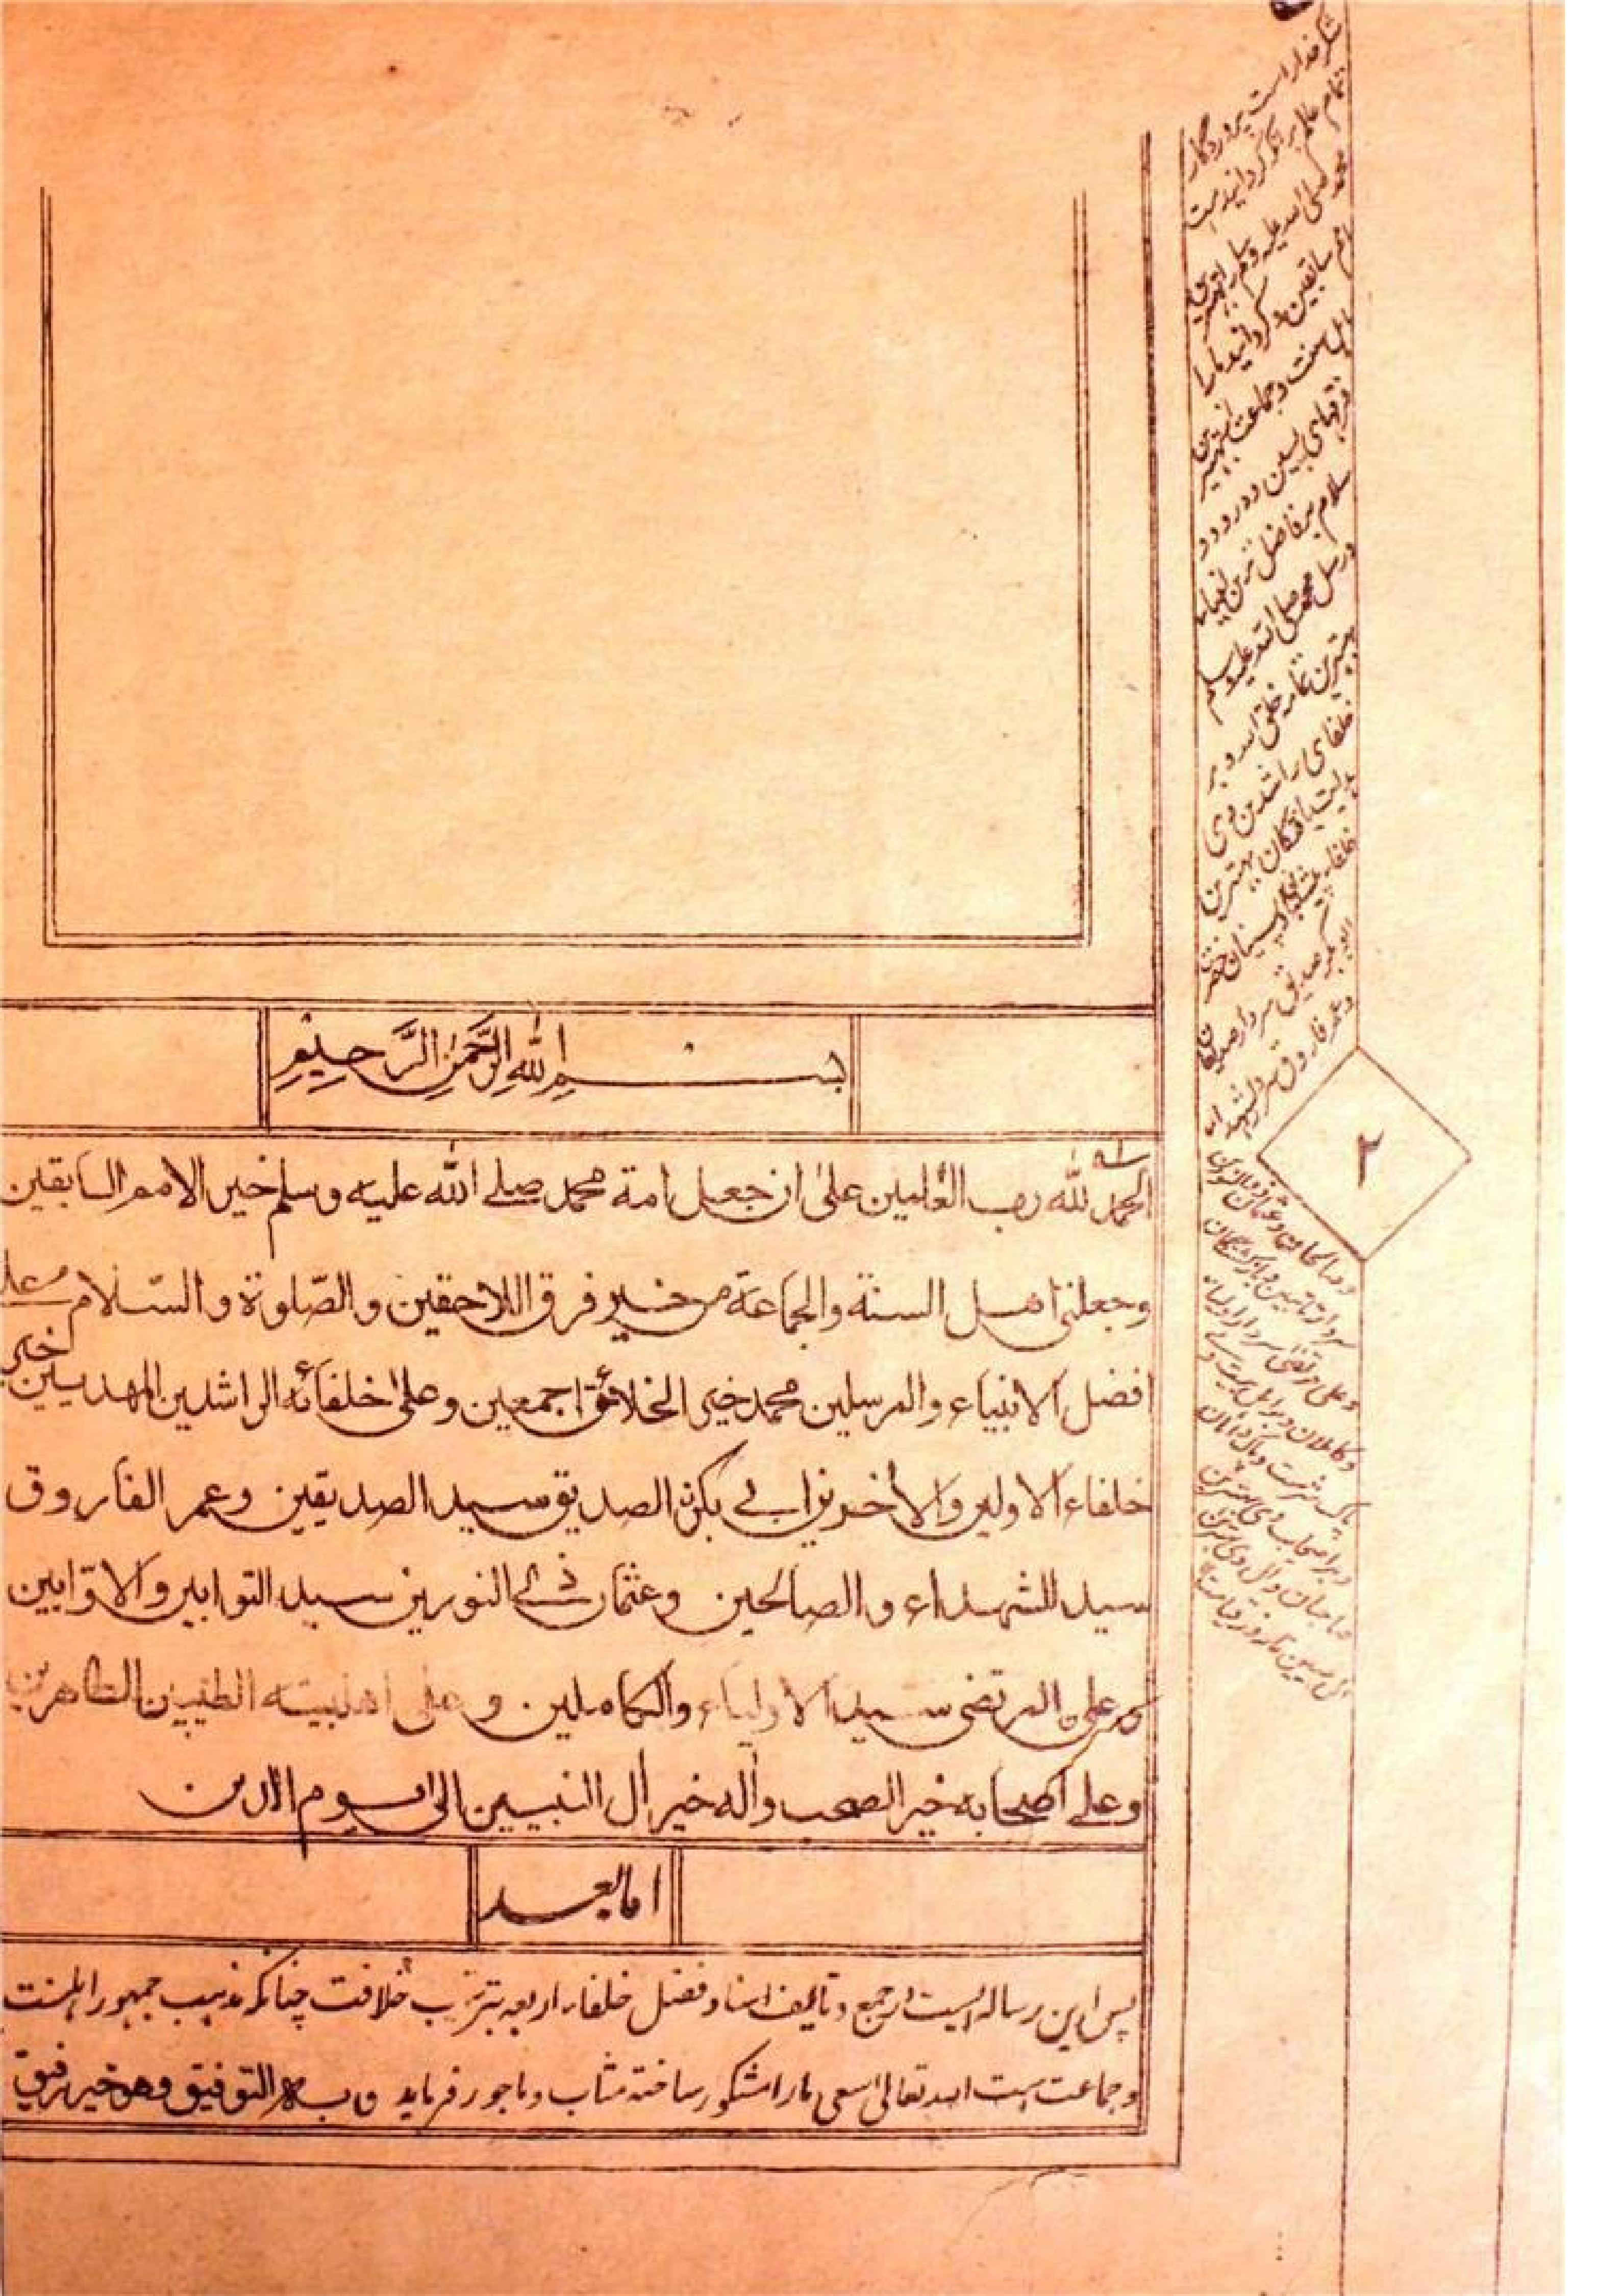 بسم الله الرحمن الرحيم
الحمد لله رب العٰلمين علىٰ ان جعل امة محمد صلے الله عليه وسلم خير الامم السابقين
وجعلنا اهل السنة والجماعة من خير فرق اللاحقين والصّلوة والسّلام علے
افضل الانبياء والمرسلين محمد خير الخلائق اجمعين وعلىٰ خلفائه الراشدين المهديين خير
خلفاء الاولين والاٰخرين ابے بكر الصديق سيد الصديقين وعمر الفاروق
سيد الشهداء والصالحين وعثمان ذے النورين سيد التوابين والاوّابين
وعلي المرتضى سيد الاولياء والكاملين وعلى اهلبيته الطيبين الطاهرين
وعلے اصحابه خير الصحب واٰله خير اٰل النبيين الى يوم الدين
اما بعد
پس این رساله ایست در جمع و تالیف اسناد فضل خلفاء اربعه بترتیب خلافت چنانکه مذهب جمهور اهلسنت
و جماعت است الله تعالی سعی ما را مشکور ساخته مثاب و ماجور فرماید وبه التوفيق وهو خير رفيق
شکر خدا راست پروردگار
تمام عالم بر آنکه گردانید امت
محمد صلی الله علیه وسلم را بهترین
امم سابقین و گردانید ما را
اهل سنت و جماعت از بهترین
فرقهای پسین و درود و
سلام بر فاضل ترین انبیاء
ورسل محمد صلی الله علیه وسلم
بهترین تمام خلق الله و بر
خلفای راشدین وی
هدایت یافتگان بهترین
خلفاء پیشینیان و پسینیان حضرت
ابوبکر صدیق سردار صدیقان
و عمر فاروق سردار شهداء
و صالحان و عثمان ذوالنورین
سردار تائبین و
و علی مرتضی سردار اولیاء
و کاملان و بر اهل بیت وی
پاک سرشت و پاک دامنان
و بر اصحاب وی بهترین
صاحبان و آل وی بهترین
آل نبیین تا روز قیامت
٢